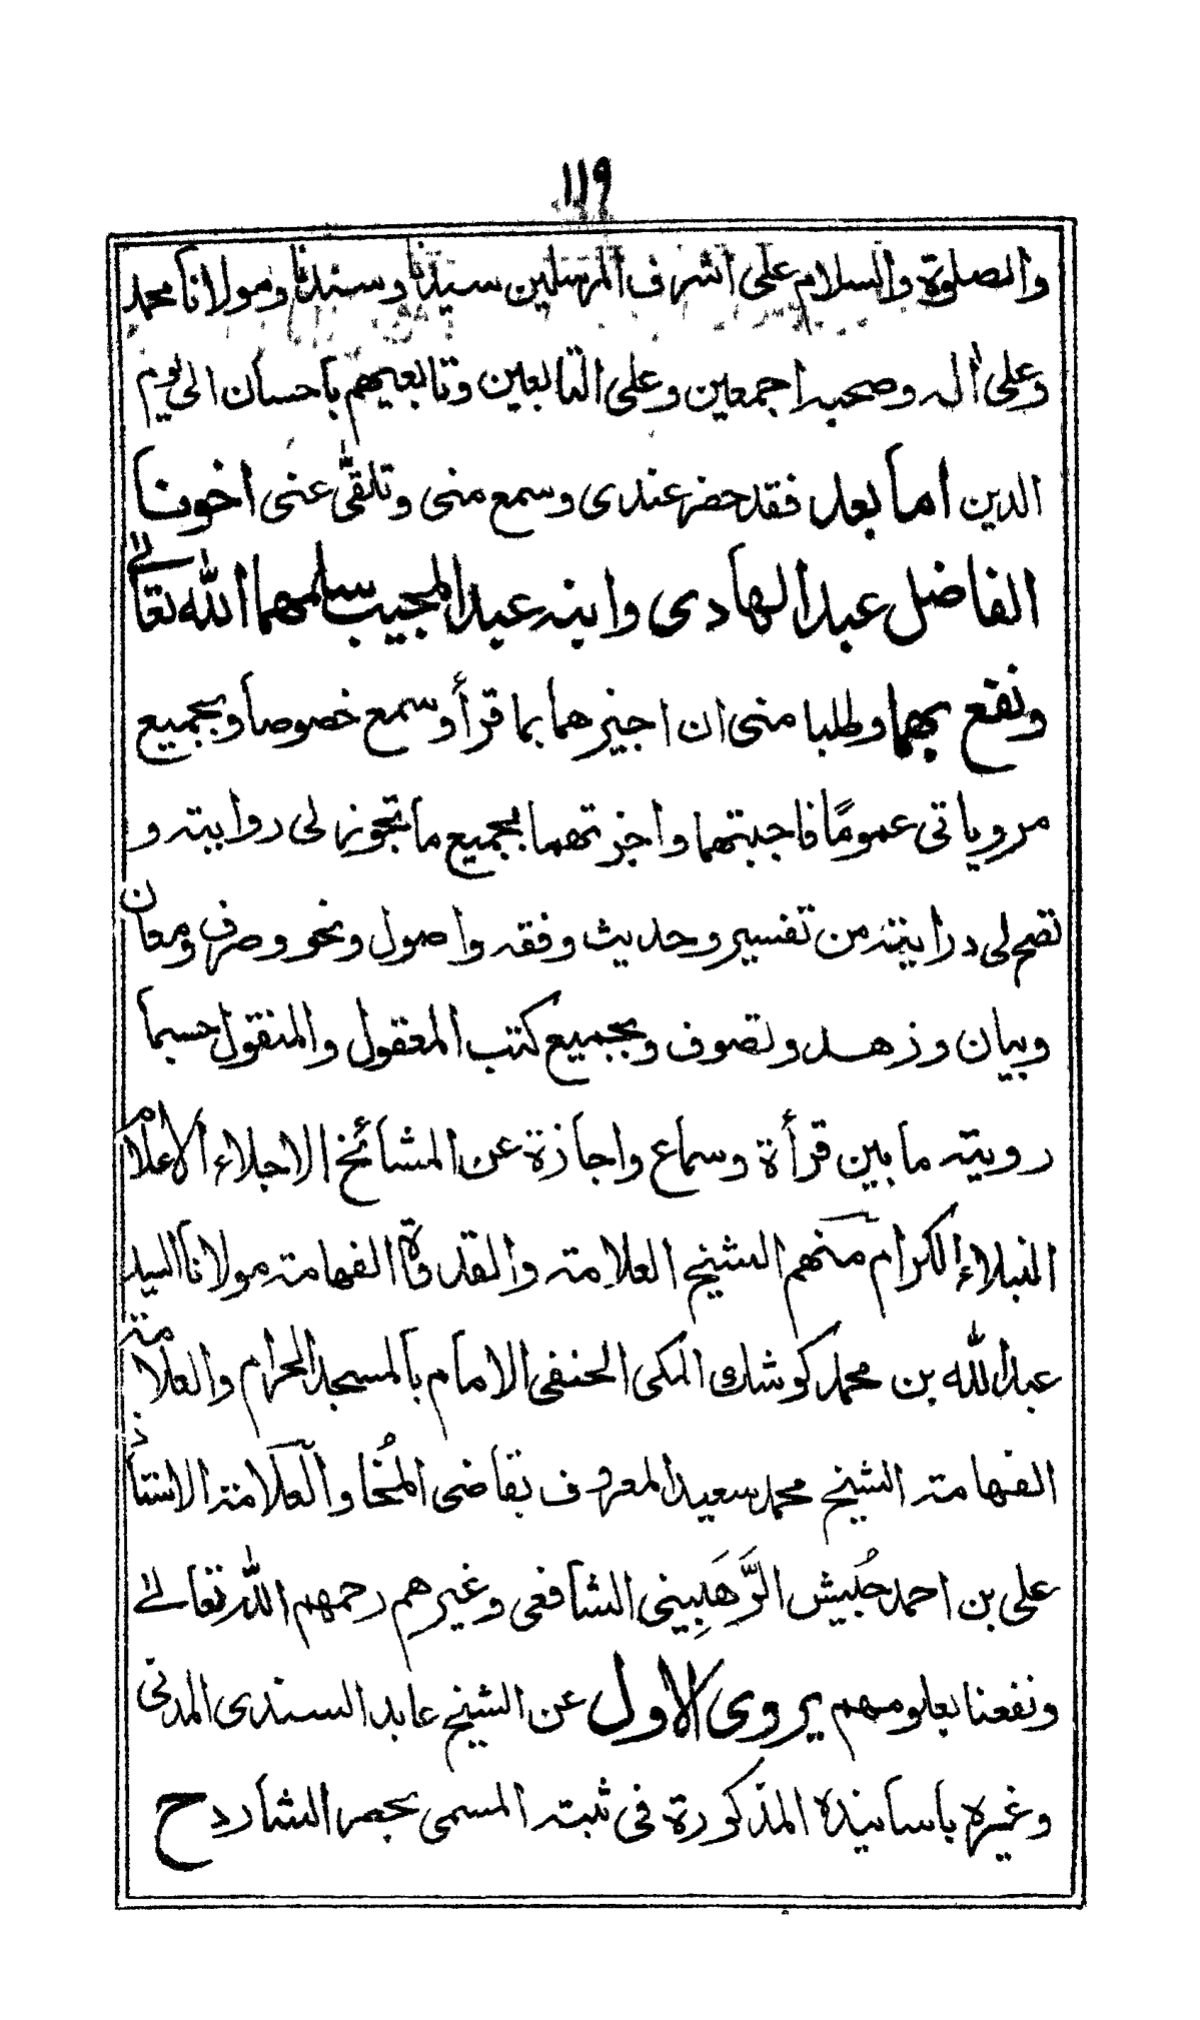 ١١٩
والصلوة والسلام على اشرف المرسلين سيدنا وسندنا ومولانا محمد
وعلى اله وصحبه اجمعين وعلى التابعين وتابعيهم باحسان الى يوم
الدين اما بعد فقد حضر عندى وسمع منى وتلقى عنى اخونا
الفاضل عبد الهادى وابنه عبد المجيب سلمهما الله تعالے
ونفع بهما وطلبا منى ان اجيزهما بما قرأ وسمع خصوصا وبجميع
مروياتى عمومًا فاجبتهما واجزتهما بجميع ما تجوز لى روايته و
تصح لى درايته من تفسير وحديث وفقه واصول ونحو وصرف ومعان
وبيان وزهد وتصوف وبجميع كتب المعقول والمنقول حسبما
رويته ما بين قرأة وسماع واجازة عن المشائخ الاجلاء الاعلام
النبلاء الكرام منهم الشيخ العلامته والقدوة الفهامته مولانا السيد
عبد الله بن محمد كوشك المكى الحنفى الامام بالمسجد الحرام والعلامته
الفهامته الشيخ محمد سعيد المعروف بقاضى المُخا والعلامته الاستاذ
على بن احمد حُبيش الرَّهَبِينى الشافعى وغيرهم رحمهم الله تعالے
ونفعنا بعلومهم يروى الاول عن الشيخ عابد السندى المدنى
وغيره باسانيده المذكورة فى ثبته المسمى بحصر الشارد ح